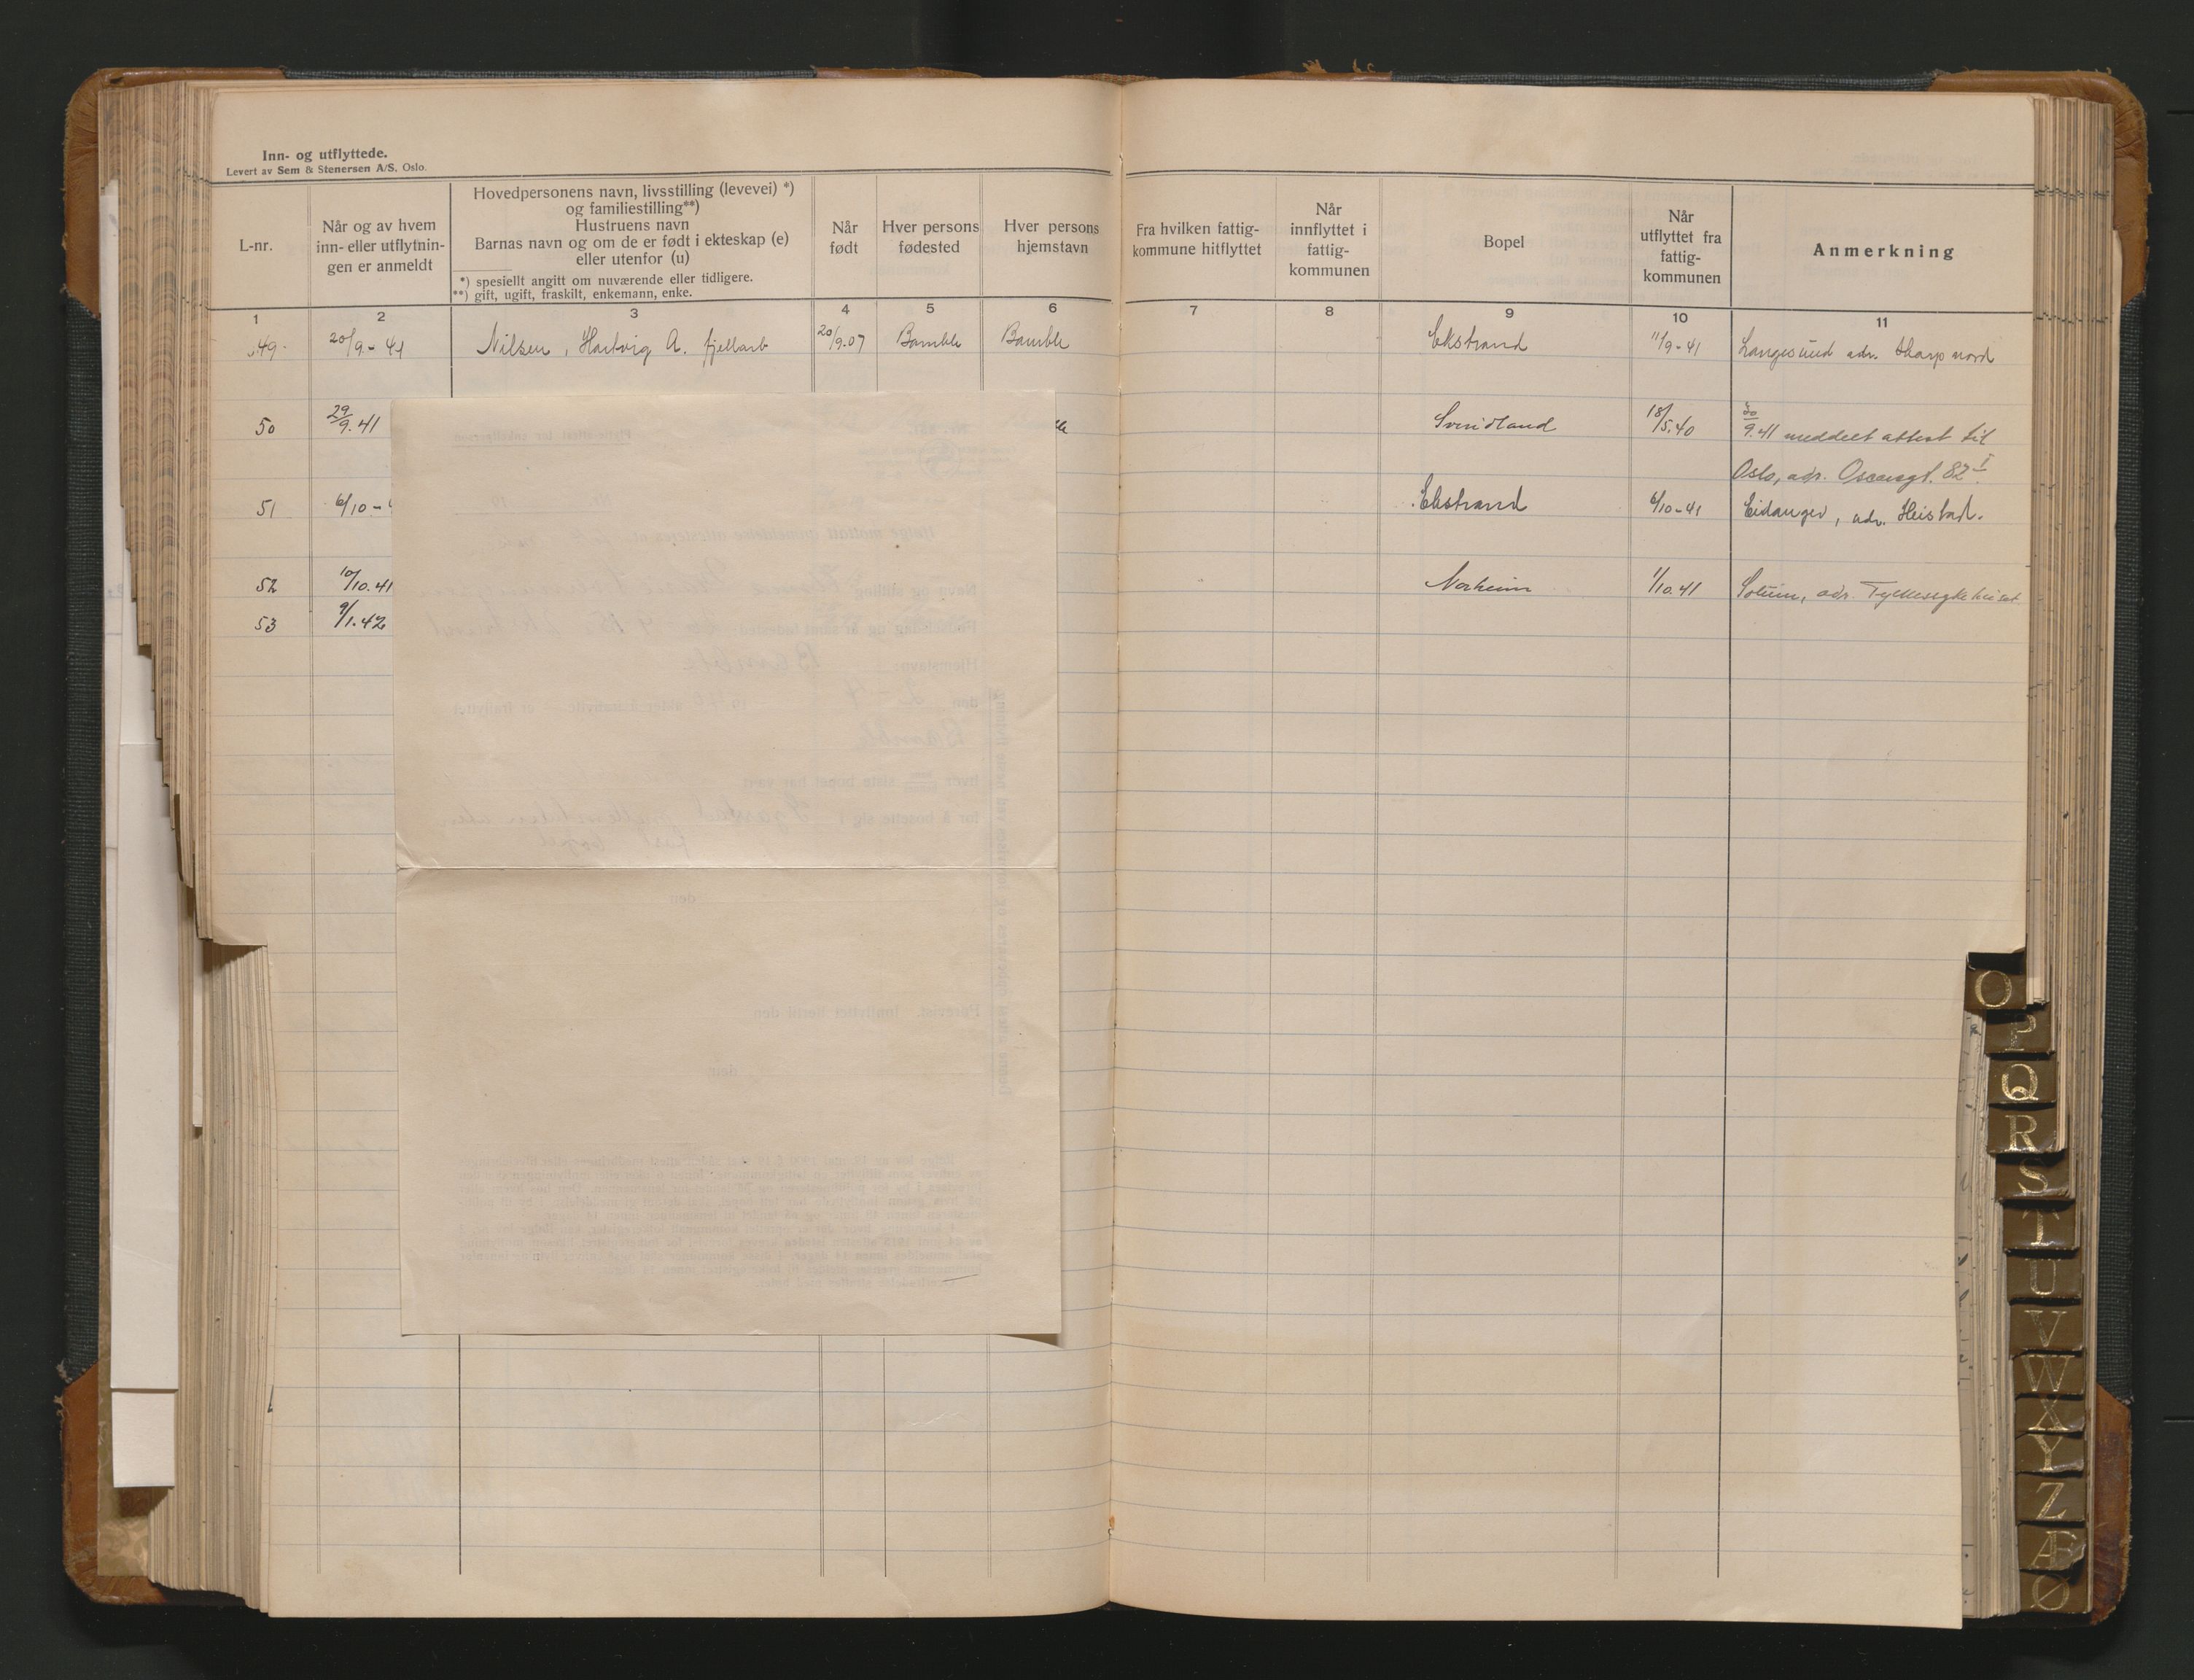 Inn- og utflyttede.
Levert av Sem & Stenersen A/S. Oslo.
L-nr.
Når og av hvem
inn- eller utflytnin-
gen er anmeldt
Hovedpersonens navn, livsstilling (levevei) *)
og familiestilling**)
Hustruens navn
Barnas navn og om de er født i ekteskap (e)
eller utenfor (u)
*) spesiellt angitt om nuværende eller tidligere.
**) gift, ugift, fraskilt, enkemann, enke.
Når
født
Hver persons
fødested
Hver persons
hjemstavn
Fra hvilken fattig-
kommune hitflyttet
Når
innflyttet i
fattig-
kommunen
Bopel
Når
utflyttet fra
fattig-
kommunen
Anmerkning
1 2 3 4 5 6 7 8 9 10 11
49 20/9-41 Nilsen, Hartvig A. fjellarb 20/9-07 Bamble Bamble Ekstrand 11/9-41 Langesund adr. nord
50 29/9.41 18/5.40 30/9.41 meddelt attest til
Oslo, adr. Oscarsgt. 82 I
51 6/10- Ekstrand 6/10-41 Eidanger, adr. Heistad.
52 10/10.41 Norheim 1/10.41 Solum, adr.
53 9/1.42
O
P
Q
R
S
T
U
V
W
X
Y
Z
Æ
Ø